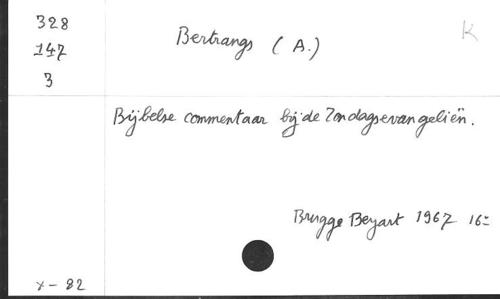 328
147
3
Bertrangs (A.)
K
Bijbelse commentaar bij de Zondagsevangeliën.
Brugge Beyart 1967 16=
x - 82